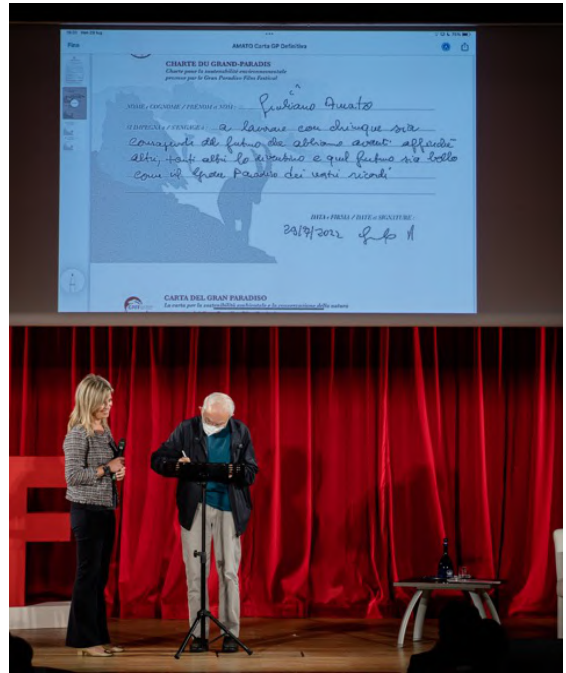 AMATO Carta GP Definitiva
CHARTE DU GRAND-PARADIS
Charte pour la sostenibilité environnementale
promue par le Gran Paradiso Film Festival
NOME e COGNOME / PRÉNOM et NOM :
Giuliano Amato
SI IMPEGNA a / S'ENGAGE à :
a lavorare con chiunque sia
consapevole del futuro che abbiamo avanti affinché
altri, tanti altri lo diventino e quel futuro sia bello
come il Gran Paradiso dei nostri ricordi
DATA e FIRMA / DATE et SIGNATURE :
29/7/2022
CARTA DEL GRAN PARADISO
La carta per la sostenibilità ambientale e la conservazione della natura
F